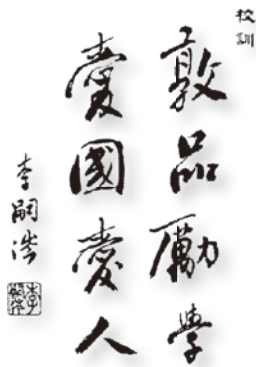 校訓
敦品勵學
愛國愛人
李嗣浩